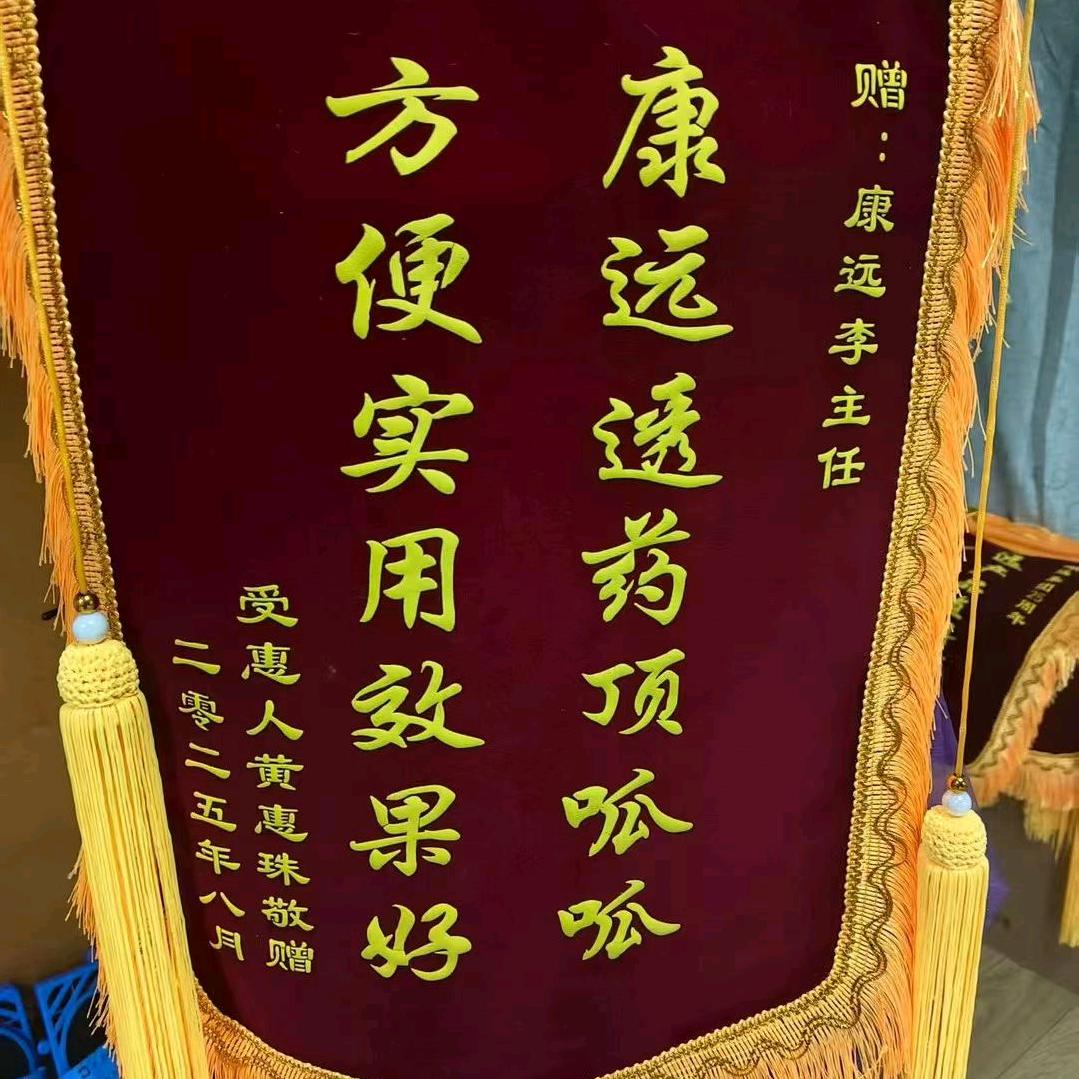 赠：康远李主任
康远透药顶呱呱
方便实用效果好
受惠人黄惠珠敬赠
二零二五年八月